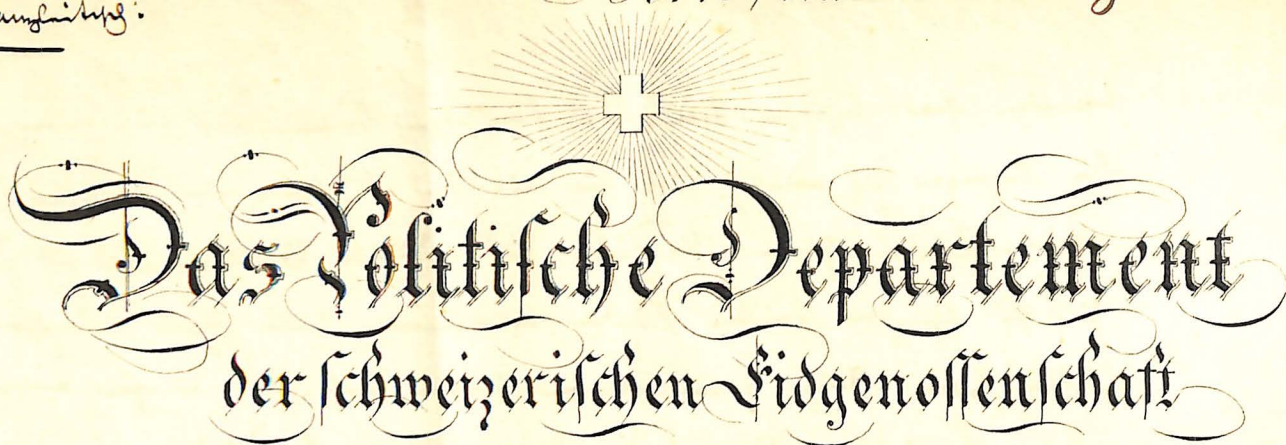 Das Politische Departement
der schweizerischen Eidgenossenschaft